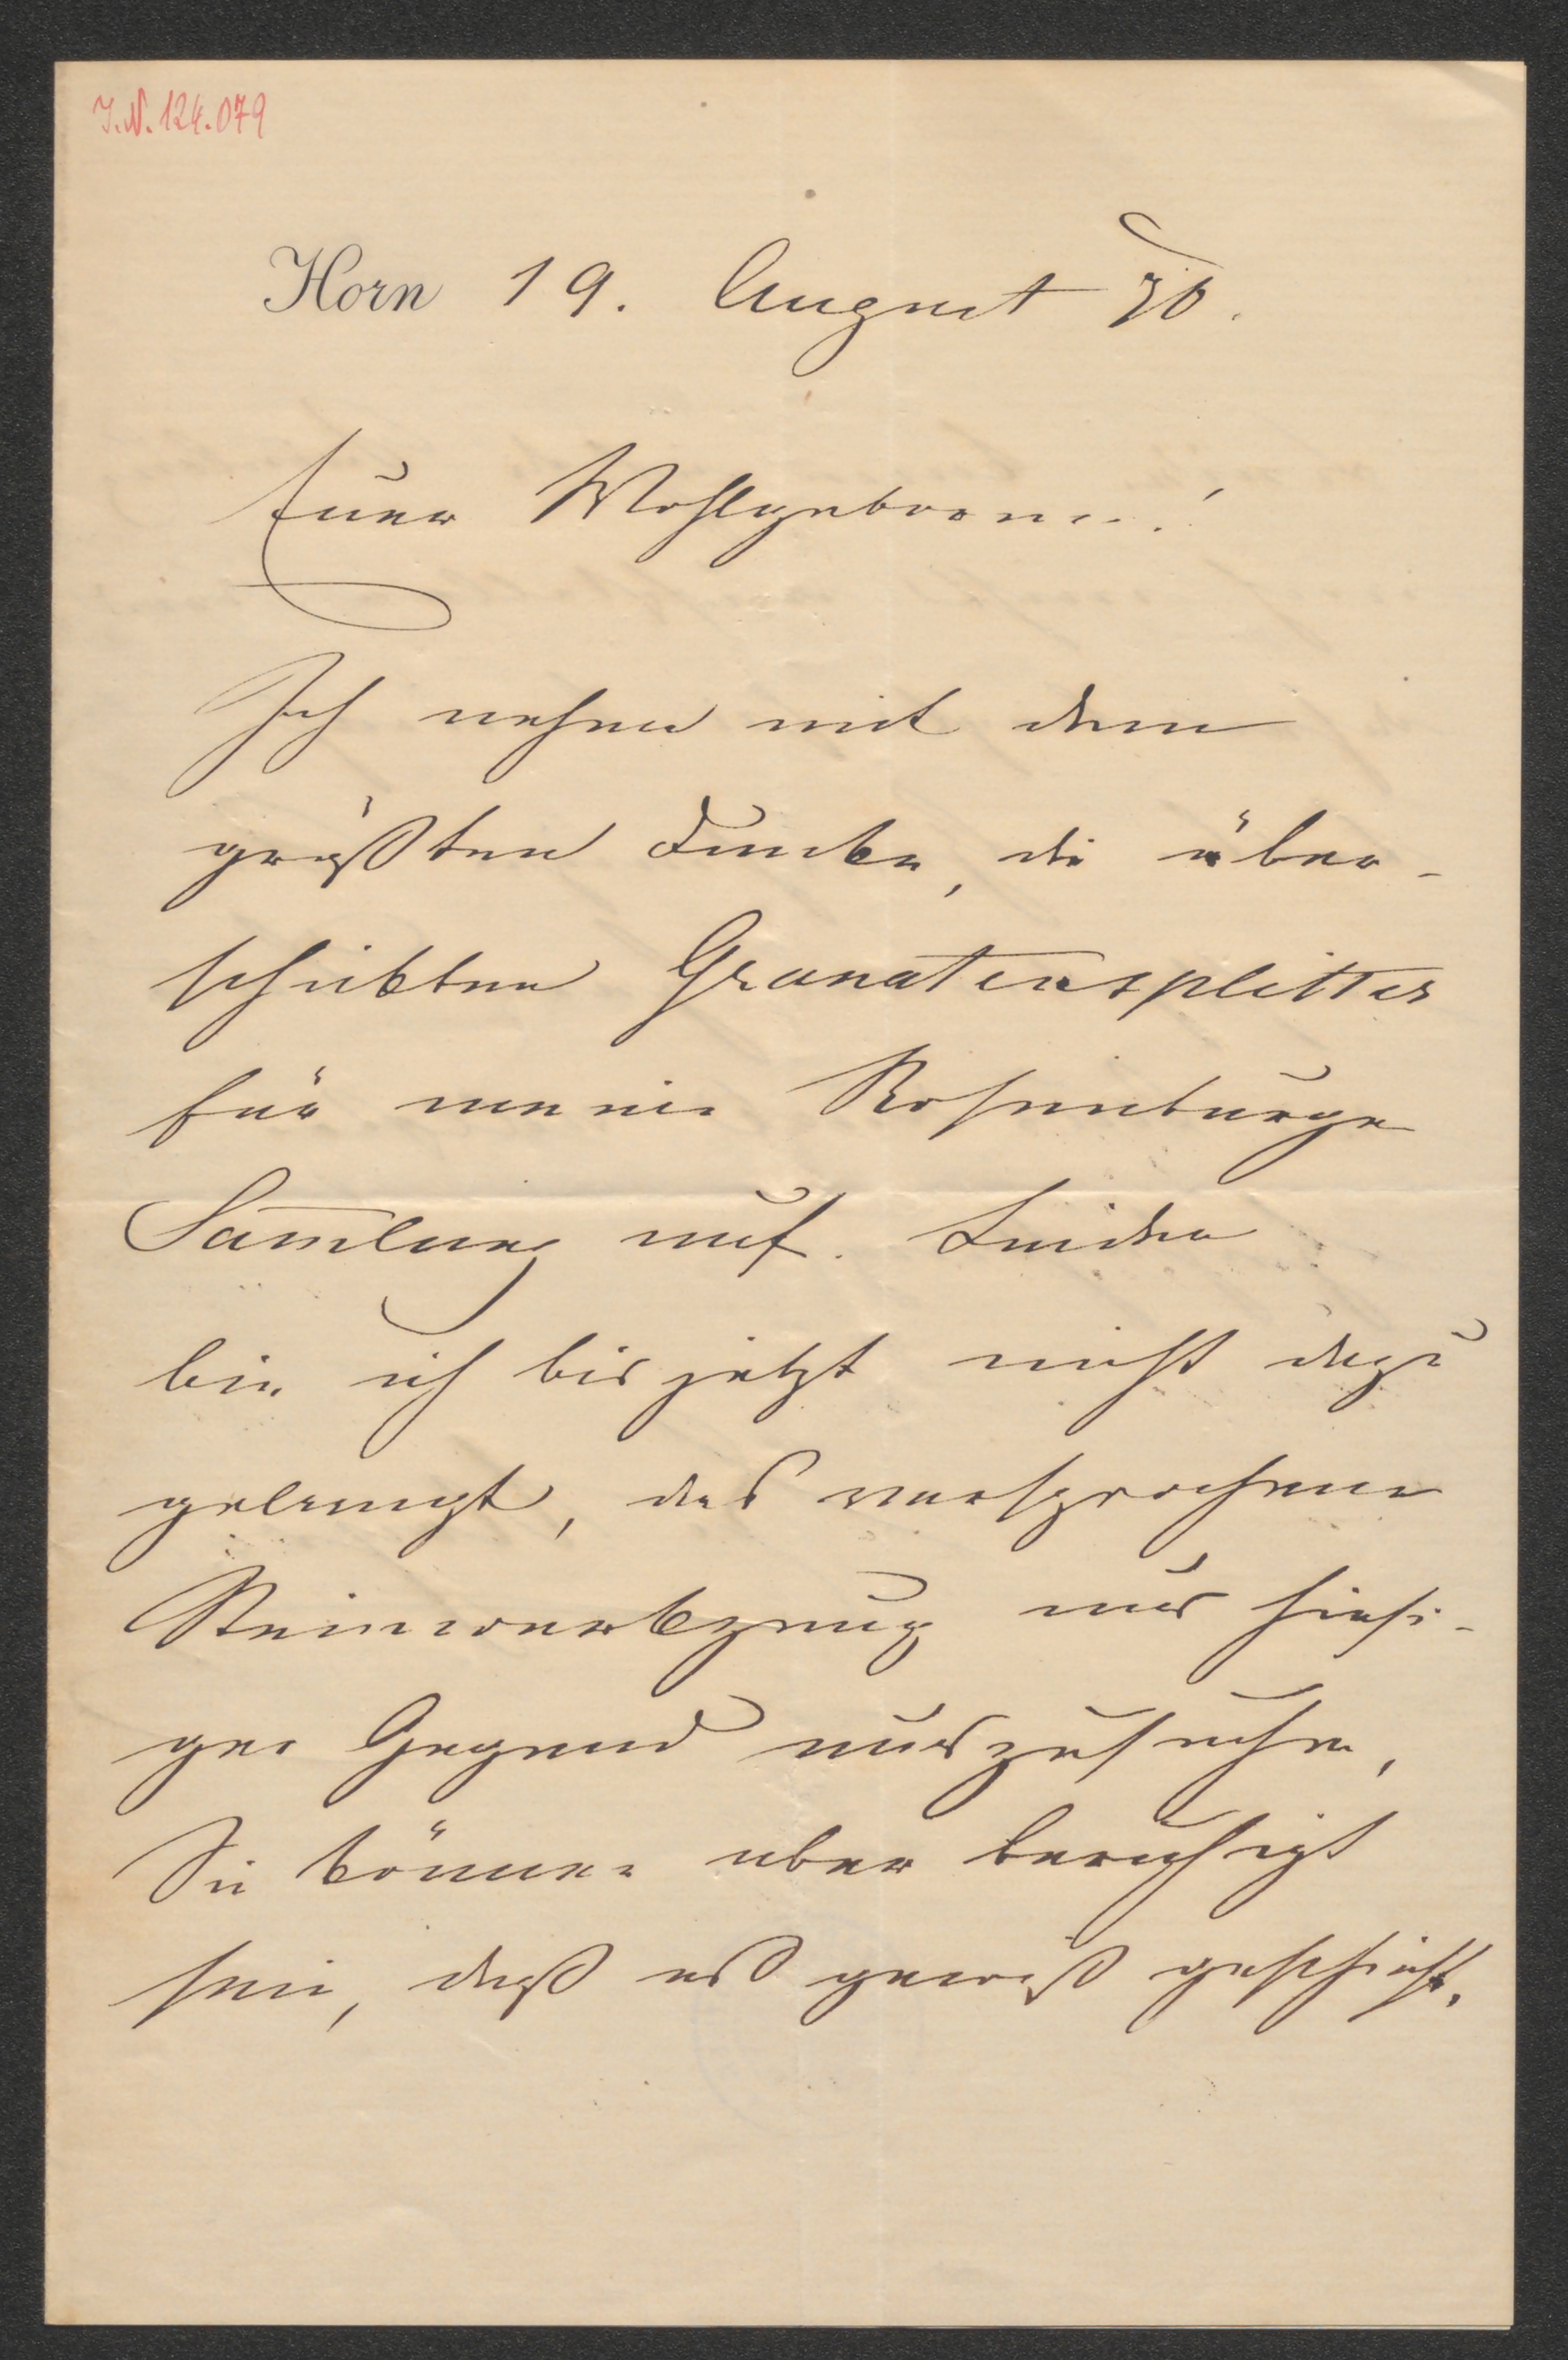 I.N. 124.079
Horn 19. August 76.
Euer Wohlgeboren!
Ich nehme mit dem
größten Danke, die über-
schikten Granatensplitter
für meine Rosenburger
Sam̅lung auf. Leider
bin ich bis jetzt nicht dazu
gelangt, das versprochene
Steinwerkzeug aus hiesi-
ger Gegend auszusuchen,
Sie können aber beruhigt
sein, daß es gewiß geschieht.